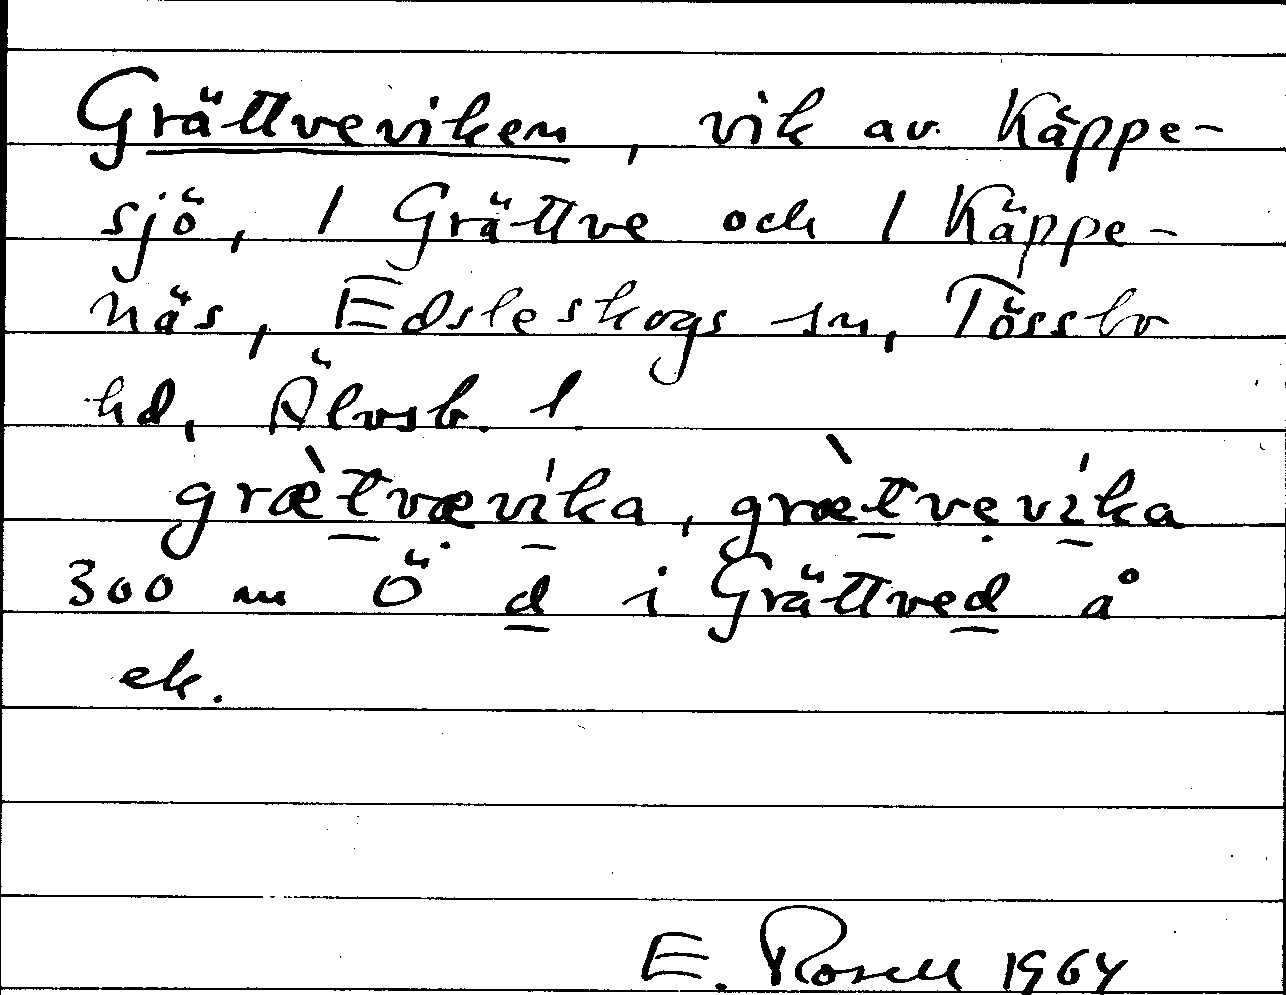 Grättveviken, vik av Käppe-
sjö, 1 Grättve och 1 Käppe-
näs, Edsleskogs sn, Tössbo
hd, Älvsb. l
græ̀t̲væ̣ví̲ka, græ̀t̲vẹví̲ka
300 m Ö d̲ i Grättved̲ å
ek.
E. Rosell 1964